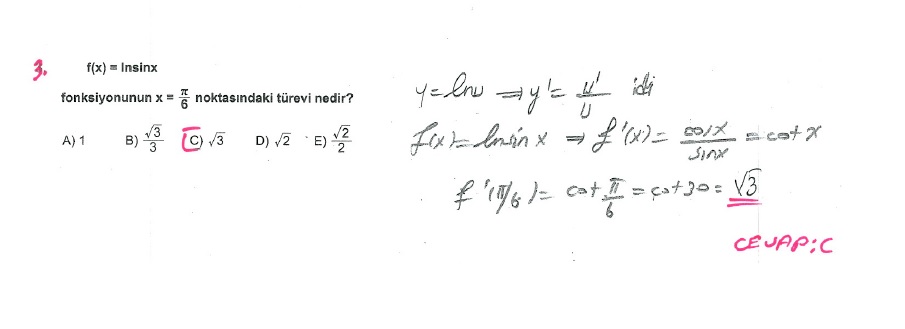 3. f(x) = lnsinx
fonksiyonunun x = π/6 noktasındaki türevi nedir?
A) 1 B) √3/3 C) √3 D) √2 E) √2/2
y = lnu ⇒ y' = u'/u idi
f(x) = lnsin x ⇒ f'(x) = cosx/sinx = cot x
f'(π/6) = cot π/6 = cot30 = √3
CEVAP: C